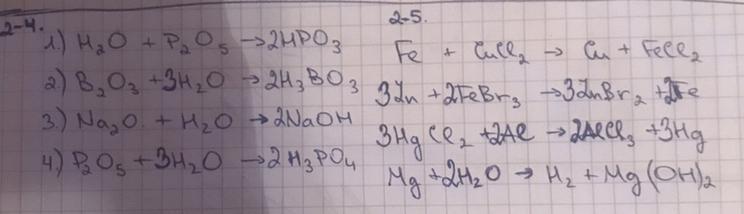 2-4.
1) H₂O + P₂O₅ → 2HPO₃
2) B₂O₃ + 3H₂O → 2H₃BO₃
3.) Na₂O + H₂O → 2NaOH
4) P₂O₅ + 3H₂O → 2H₃PO₄
2-5.
Fe + CuCl₂ → Cu + FeCl₂
3Zn + 2FeBr₃ → 3ZnBr₂ + 2Fe
3HgCl₂ + 2Al → 2AlCl₃ + 3Hg
Mg + 2H₂O → H₂ + Mg(OH)₂